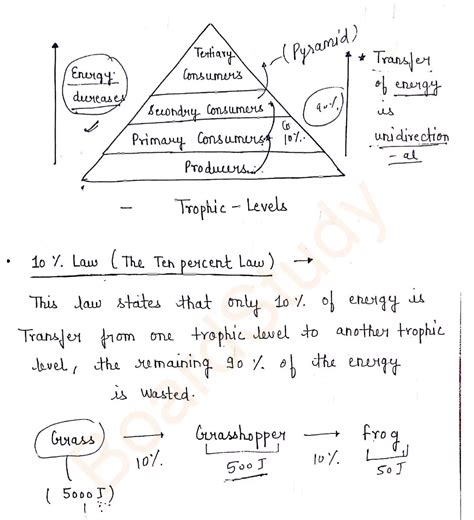 Tertiary
Consumers
(Pyramid)
Energy
decreases
★ Transfer
of energy
is
unidirection
- al
Secondry Consumers
90%
Primary Consumers
10%
Producers
- Trophic - Levels
• 10 % Law ( The Ten percent Law) →
This law states that only 10 % of energy is
Transfer from one trophic level to another trophic
level, the remaining 90 % of the energy
is wasted.
Grass → Grasshopper → frog
10% 500 J 10% 50 J
( 5000 J )
BoardStudy